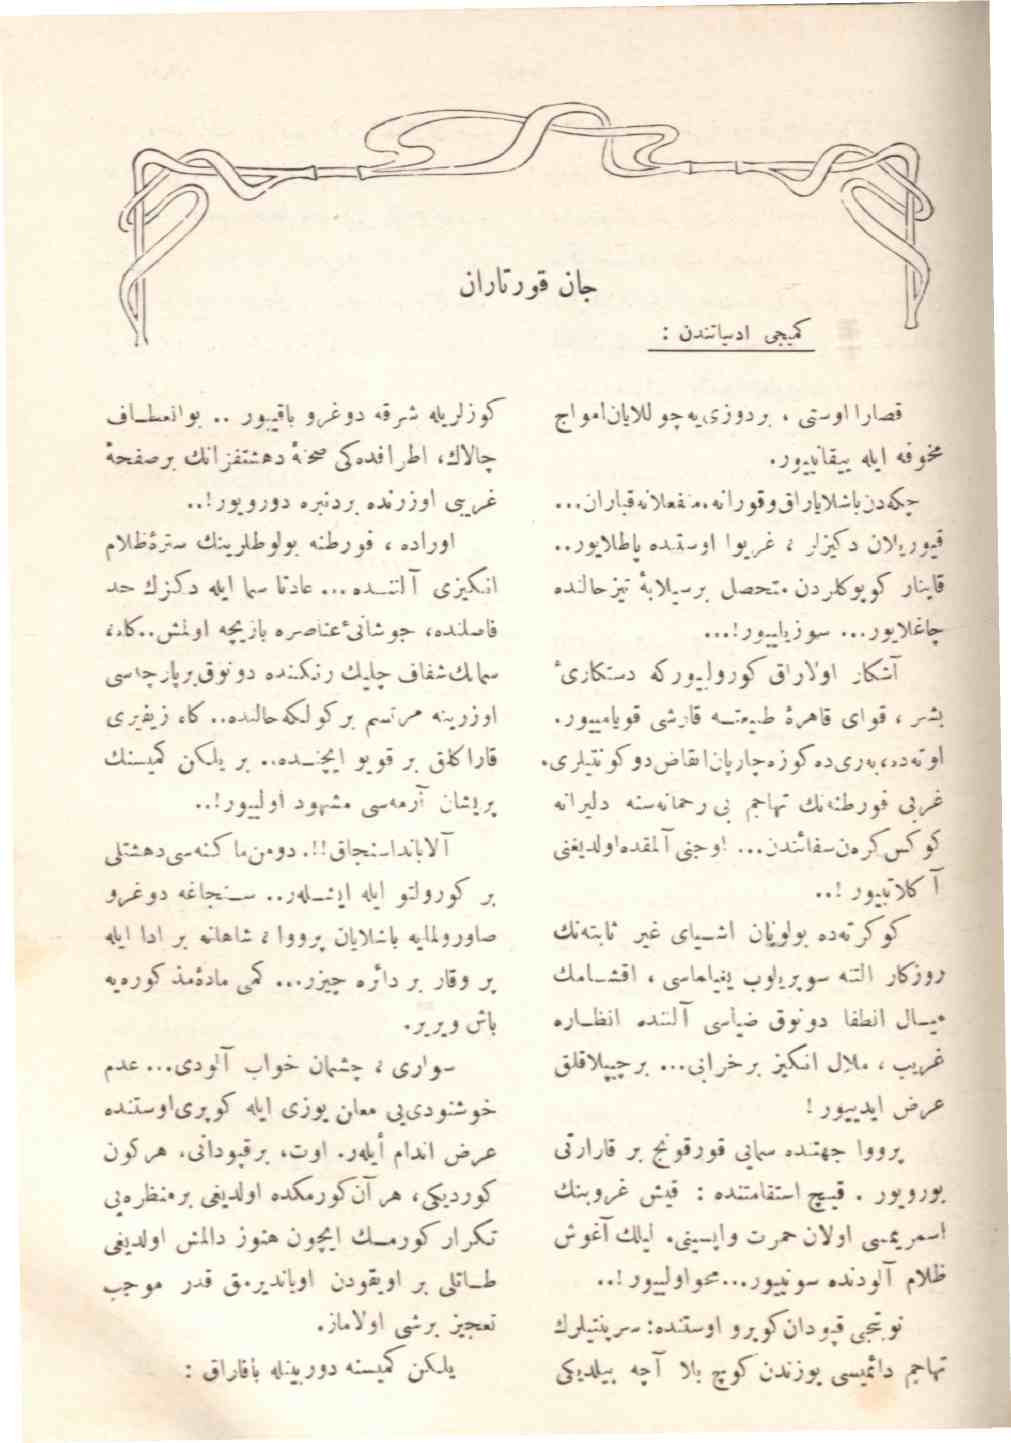 جان قورتاران
كمیجی ادبیاتندن :
قصارا اوستی ، بردوزی‌یه چوللایان امواج
مخوفه ایله ییقانییور.
چكه‌دن باشلایاراق وقورانه، منفعلانه قباران...
قیوریلان دكیزلر ، غریوا اوستنده پاطلایور..
قاینار كوپوكلردن متحصل برسیلابۀ تیز حالنده
چاغلایور... سوزیلییور!...
آشكار اولاراق كورولییوركه دستكاریٔ
بشر ، قوای قاهرۀ طبیعتـه قارشی قویامییور.
اوته‌ده، بری‌ده كوزه چارپان انقاض دوكونتیلری.
غربی فورطنه‌نك تهاجم بی رحمانه‌سنه دلیرانه
كوكس كرەن سفائندن... اوجنی آلمقده اولدیغنی
آكلاتییور !..
كوكرته‌ده بولونان اشـیای غیر ثابته‌نك
روزكار التنه سوپریلوب یغیلماسی ، اقشـامك
میـال انطفا دونوق ضیاسی آلتنده انظـاره
غریب ، ملال انكیز برخرابی... برچیپلاقلق
عرض ایدییور !
پرووا جهتنده سمایی قورقونج بر قارارتی
بورویور . قیچ استقامتنده : قیش غروبنك
اسمریمسی اولان حمرت واپسینی. لیلك آغوش
ظلام آلودنده سونییور... محو اولییور !..
نوبتجی قپودان كوپرو اوستنده: سرپنتیلرك
تهاجم دائمیسی یوزندن كوچ بلا آچه بیلدیكی
كوزلریله شرقه دوغرو باقییور .. بوانعطـاف
چالاك، اطرافده‌كی صحنۀ دهشتفزانك برصفحۀ
غریبی اوزرنده بردنبره دورویور!..
اوراده ، فورطنه بولوطلرینك سترۀ ظلام
انكیزی آلتنـده... عادتا سما ایله دكزك حد
فاصلنده، جوشانیٔ عناصره بازیچه اولمش.. كاه،
سمانك شفاف چلیك رنكنده دونوق برپارچه‌سی
اوزرینه مرتسم بركولكه حالنده.. كاه زیفیری
قاراكلق بر قویو ایچنـده.. بر یلكن كمیسنك
پریشان آرمه‌سی مشهود اولییور!..
آلاباندا سنجاق!!. دومن ماكنه‌سی دهشتلی
بر كورولتو ایله ایشـلەر.. سـنجاغه دوغرو
صاورولمایه باشلایان پرووا ، شاهانه بر ادا ایله
پر وقار بر دائره چیزر... كمی مادۀ مذكوره‌یه
باش ویریر.
سواری ، چشمان خواب آلودی... عدم
خوشنودی‌یی معلن یوزی ایله كوپری اوستنده
عرض اندام أیلەر. اوت، برقپودانی، هركون
كوردیكی، هر آن كورمكده اولدیغی برمنظره‌یی
تكرار كورمـك ایچون هنوز دالمش اولدیغی
طـاتلی بر اویقودن اویاندیرمق قدر موجب
تعجیز برشی اولاماز.
یلكن كمیسنه دوربینله باقاراق :